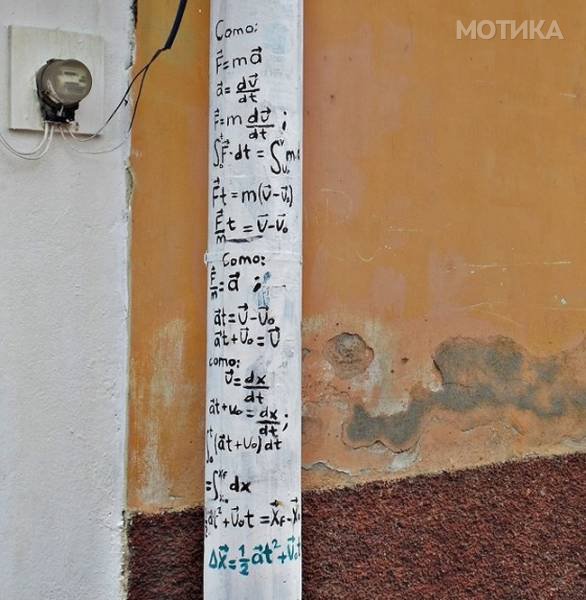 МОТИКА
Como:
F⃗ = m a⃗
a⃗ = dv⃗/dt
F⃗ = m dv⃗/dt ;
∫₀ᵗ F⃗·dt = ∫ᵥ₀ᵛ m
F⃗t = m(v⃗-v⃗₀)
F⃗/m t = v⃗-v⃗₀
Como:
F⃗/m = a⃗ ;
a⃗t = v⃗-v⃗₀
a⃗t + v⃗₀ = v⃗
como:
v⃗ = dx/dt
a⃗t + v₀ = dx/dt ;
∫₀ᵗ (a⃗t + v₀) dt
= ∫ₓ₀ˣᶠ dx
½a⃗t² + v⃗₀t = x⃗F - x⃗₀
Δx⃗ = ½ a⃗t² + v⃗₀t